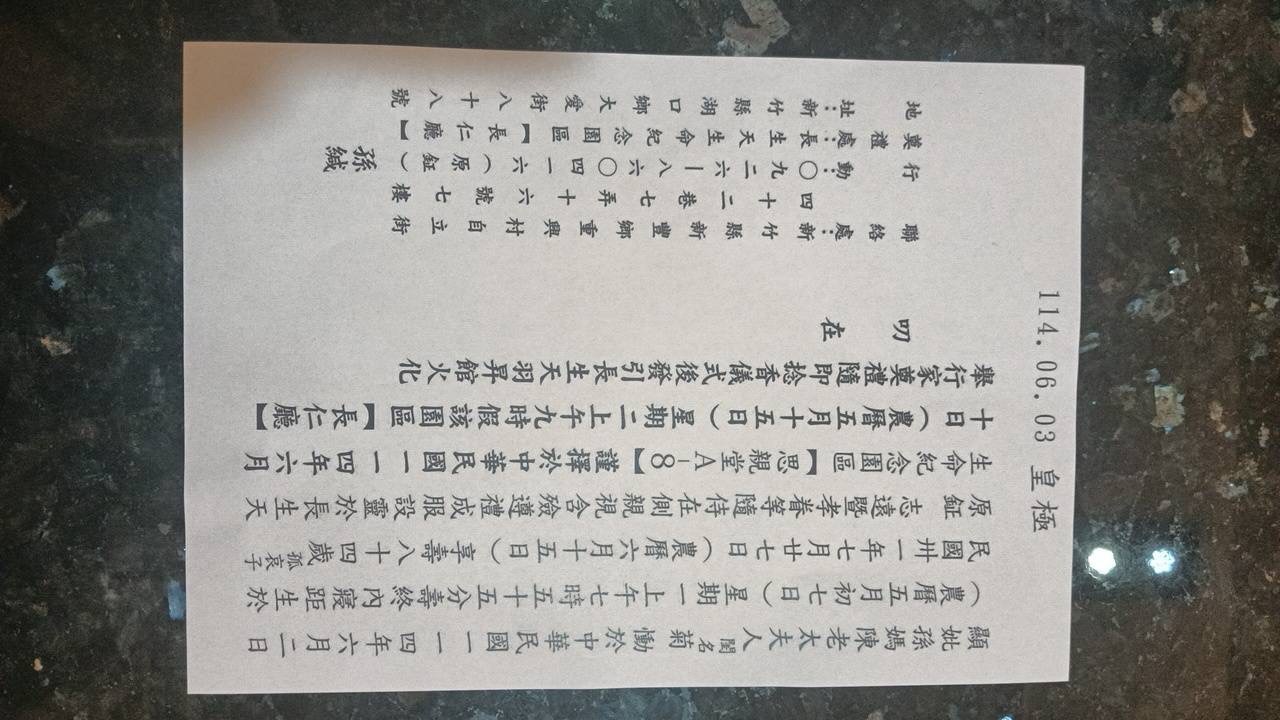 114.06.03 皇極
顯妣孫媽陳老太夫人閨名菊慟於中華民國一一四年六月二日
（農曆五月初七日）星期一上午七時五十五分壽終內寢距生於
民國卅一年七月廿七日（農曆六月十五日）享壽八十四歲孤哀子
原鉦 志遠暨孝眷等隨侍在側親視含殮遵禮成服設靈於長生天
生命紀念園區【思親堂A-8】謹擇於中華民國一一四年六月
十日（農曆五月十五日）星期二上午九時假該園區【長仁廳】
舉行家奠禮隨即捻香儀式後發引長生天羽昇館火化
叨在
聯絡處：新竹縣新豐鄉重興村自立街
四十二巷七弄十六號七樓
行動：〇九二六－八六〇四一六（原鉦）
孫緘
奠禮處：長生天生命紀念園區【長仁廳】
地址：新竹縣湖口鄉大愛街八十八號